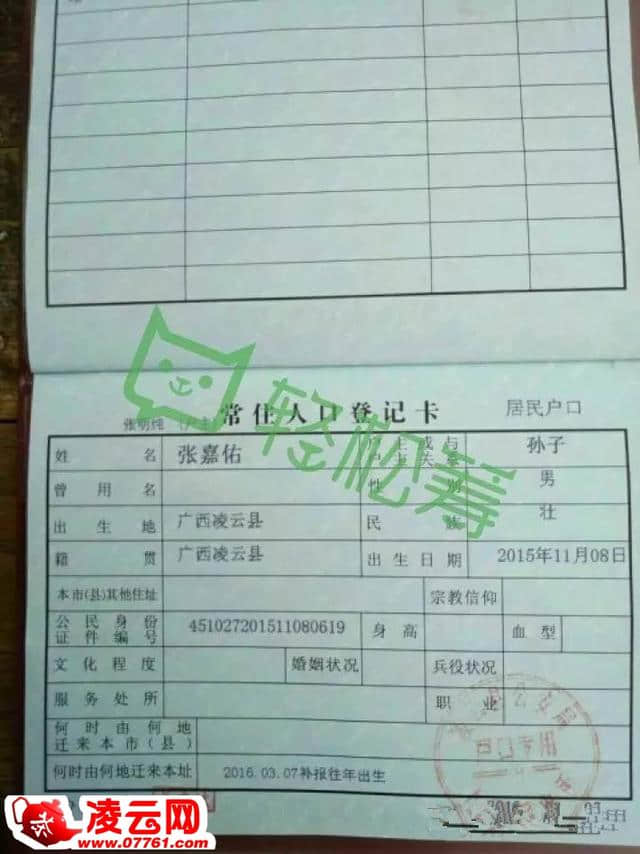 轻松筹
常住人口登记卡
居民户口
张明纯
姓名 张嘉佑 户主或与户主关系 孙子
曾用名 性别 男
出生地 广西凌云县 民族 壮
籍贯 广西凌云县 出生日期 2015年11月08日
本市(县)其他住址 宗教信仰
公民身份证件编号 451027201511080619 身高 血型
文化程度 婚姻状况 兵役状况
服务处所 职业
何时由何地迁来本市(县)
何时由何地迁来本址 2016.03.07补报往年出生
户口专用
凌云网
www.07761.com